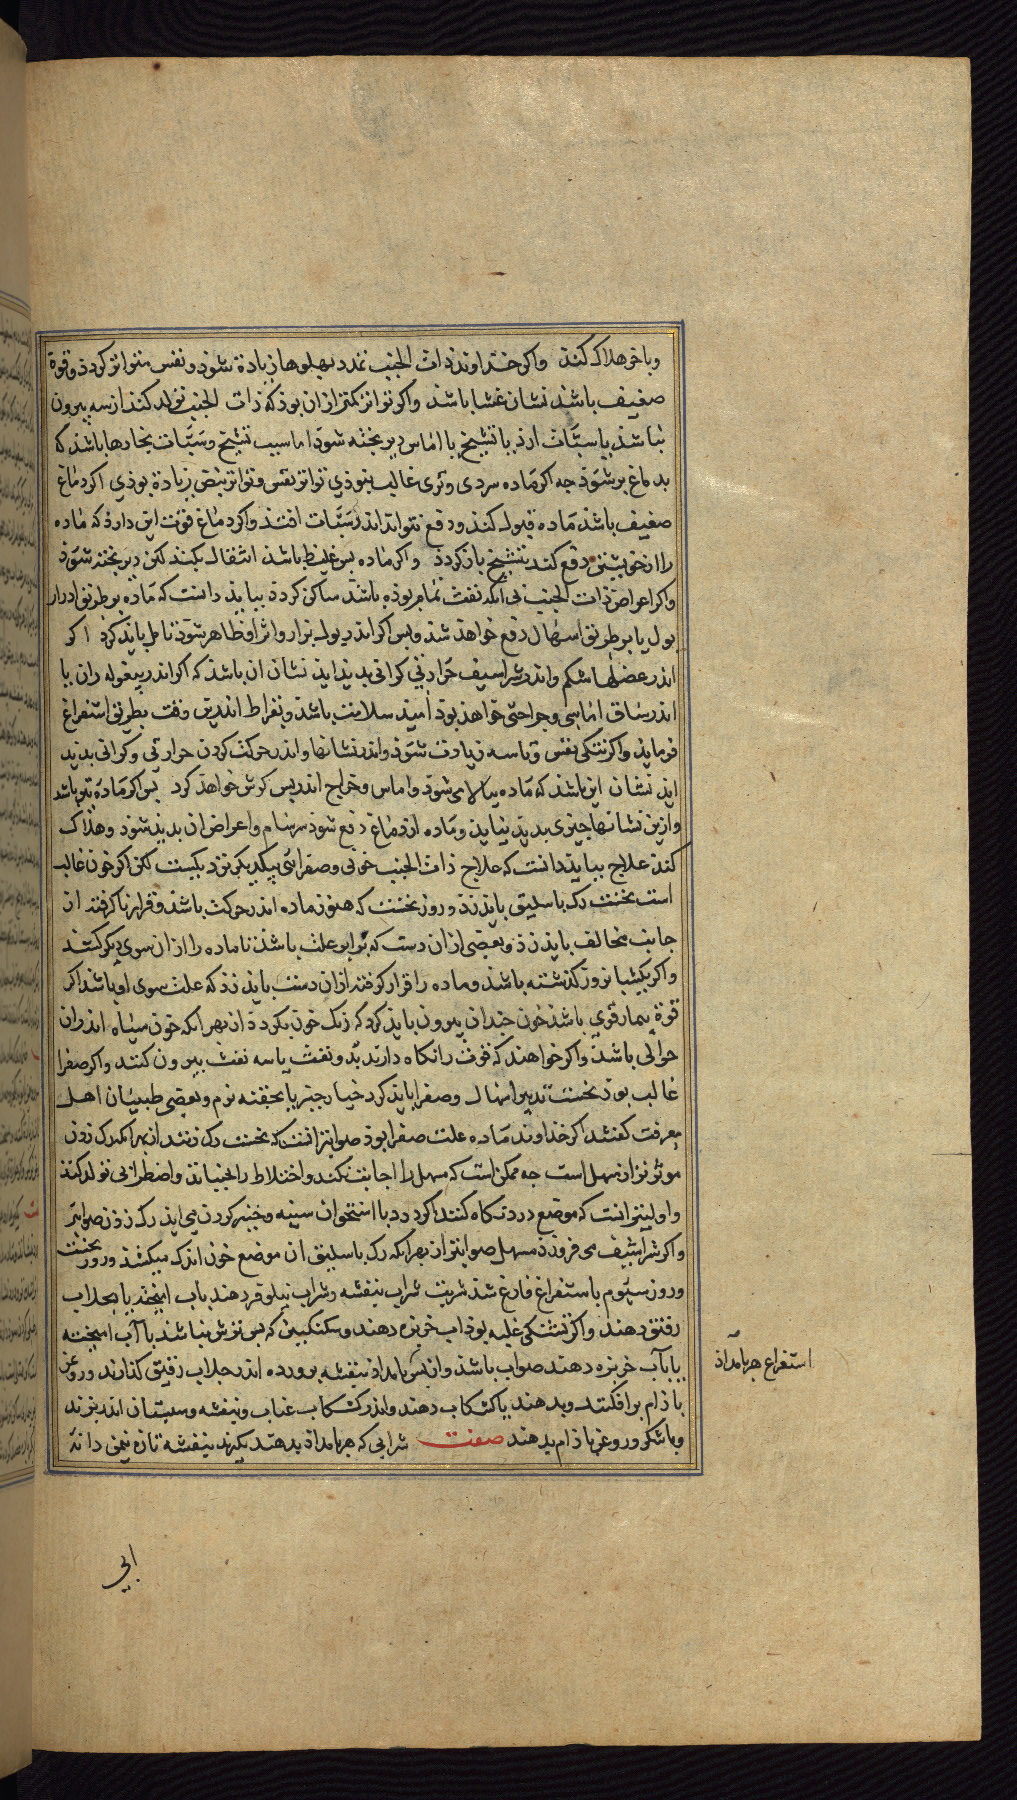 وباخر هلاک کند واکر خداوند ذات الجنب تمدد پهلوها زیادة شوذ ونفس متواتر کردذ وقوة
ضعیف باشد نشان غشا باشد واکر تواتر کمتر ازان بوذ که ذات الجنب تولد کند از سه بیرون
نباشد یا سبات ارد یا تشنج یا اماس دیر پخته شوذ اما سبب تشنج وسبات بخارها باشد که
بدماغ بر شوذ جه اکر ماده سردی وتری غالب بوذی تواتر نفس وتواتر نبض زیادة بوذی اکر دماغ
ضعیف باشد ماده قبول کند ودفع نتواند اندر سبات افتد واکر دماغ قوت این دارد که ماده
را از خویشتن دفع کند بتشنج باز کردد واکر ماده بس غلیظ باشد انتقال نکند لکن دیر پخته شوذ
واکر اعراض ذات الجنب بی انکه نفث تمام بوذه باشد ساکن کردد بباید دانست که ماده بر طریق ادرار
بول یا بر طریق اسهال دفع خواهد شد وبس اکر اندر بول براز واثر او ظاهر شوذ تامل باید کرد اکر
اندر عضلها شکم واندر شراسیف حرارتی کرانی پدید اید نشان ان باشد که اکر اندر بیغوله ران یا
اندر ساق اماسی وجراحتی خواهد بوذ امید سلامت باشد وبقراط اندرین وقت بطریق استفراغ
فرماید واکر تنکی نفس وتاسه زیادت شوذ واندر نشانها واندر حرکت کردن حرارتی وکرانی پدید
اید نشان این باشد که ماده ببالا می شوذ واماس وخراج اندر پس کوش خواهد کرد پس اکر ماده بتر باشد
وازین نشانها چیزی پدید نیاید وماده از دماغ دفع شوذ سرسام واعراض ان پدید شوذ وهلاک
کند علاج بباید دانست که علاج ذات الجنب خونی وصفرائی بیکدیکر نزدیکست لکن اکر خون غالب
است نخست رک باسلیق باید زد وروز نخست که هنوز ماده اندر حرکت باشد وقرار نا کرفته از
جانب مخالف باید زد وبعضی ازان دست که برابر علت باشد تا ماده را ازان سوی دیکر کشد
واکر یکشبانروز کذشته باشد وماده را قرار کرفته ازان دست باید زد که علت سوی او باشد اکر
قوة بیمار قوی باشد خون چندان بیرون باید کرد که رنک خون بکردد از بهر انکه خون سیاه اندران
حوالی باشد واکر خواهند که قوت را نکاه دارند بدو نفث یا سه نفث بیرون کنند واکر صفرا
غالب بوذ نخست تدبیر اسهال وصفرا باید کرد خیار چنبر یا بحقنه نرم وبعضی طبیبان اهل
معرفت کفتند اکر خداوند ماده علت صفرا بوذ صوابتر انست که نخست رک زنند از بهر انکه رک زدن
موثر تر از مسهل است جه ممکن است که مسهل را اجابت نکند واختلاط را بجنباند واضطرابی تولد کند
واولیتر انست که موضع درد نکاه کنند اکر درد با استخوان سینه وچنبر کردن می اید رک زدن صوابتر
واکر شراسیف می فروزد مسهل صوابتر از بهر انکه رک باسلیق ان موضع خون اندک میکشد وروز نخست
وروز سیوم باستفراغ فارغ شد شربت شراب بنفشه وشراب نیلوفر دهند باب امیخته یا بجلاب
رقیق دهند واکر تشنکی غلبه بوذ اب خربزه دهند وسکنکبین که بس ترش نباشد با آب امیخته
یا بآب خربزه دهند صواب باشد وان بس بامداد بنفشه پرورده اندر جلاب رقیق کدازند وروغن
بادام برافکنند وبدهند یا کشکاب دهند واندر کشکاب عناب وبنفشه وسپستان اندر پزند
وباشکر وروغن باذام بدهند صفت شرابی که هر بامداد بدهند بکیرند بنفشه تازه نیمنی دانه
استفراع هر بامداد
ابی